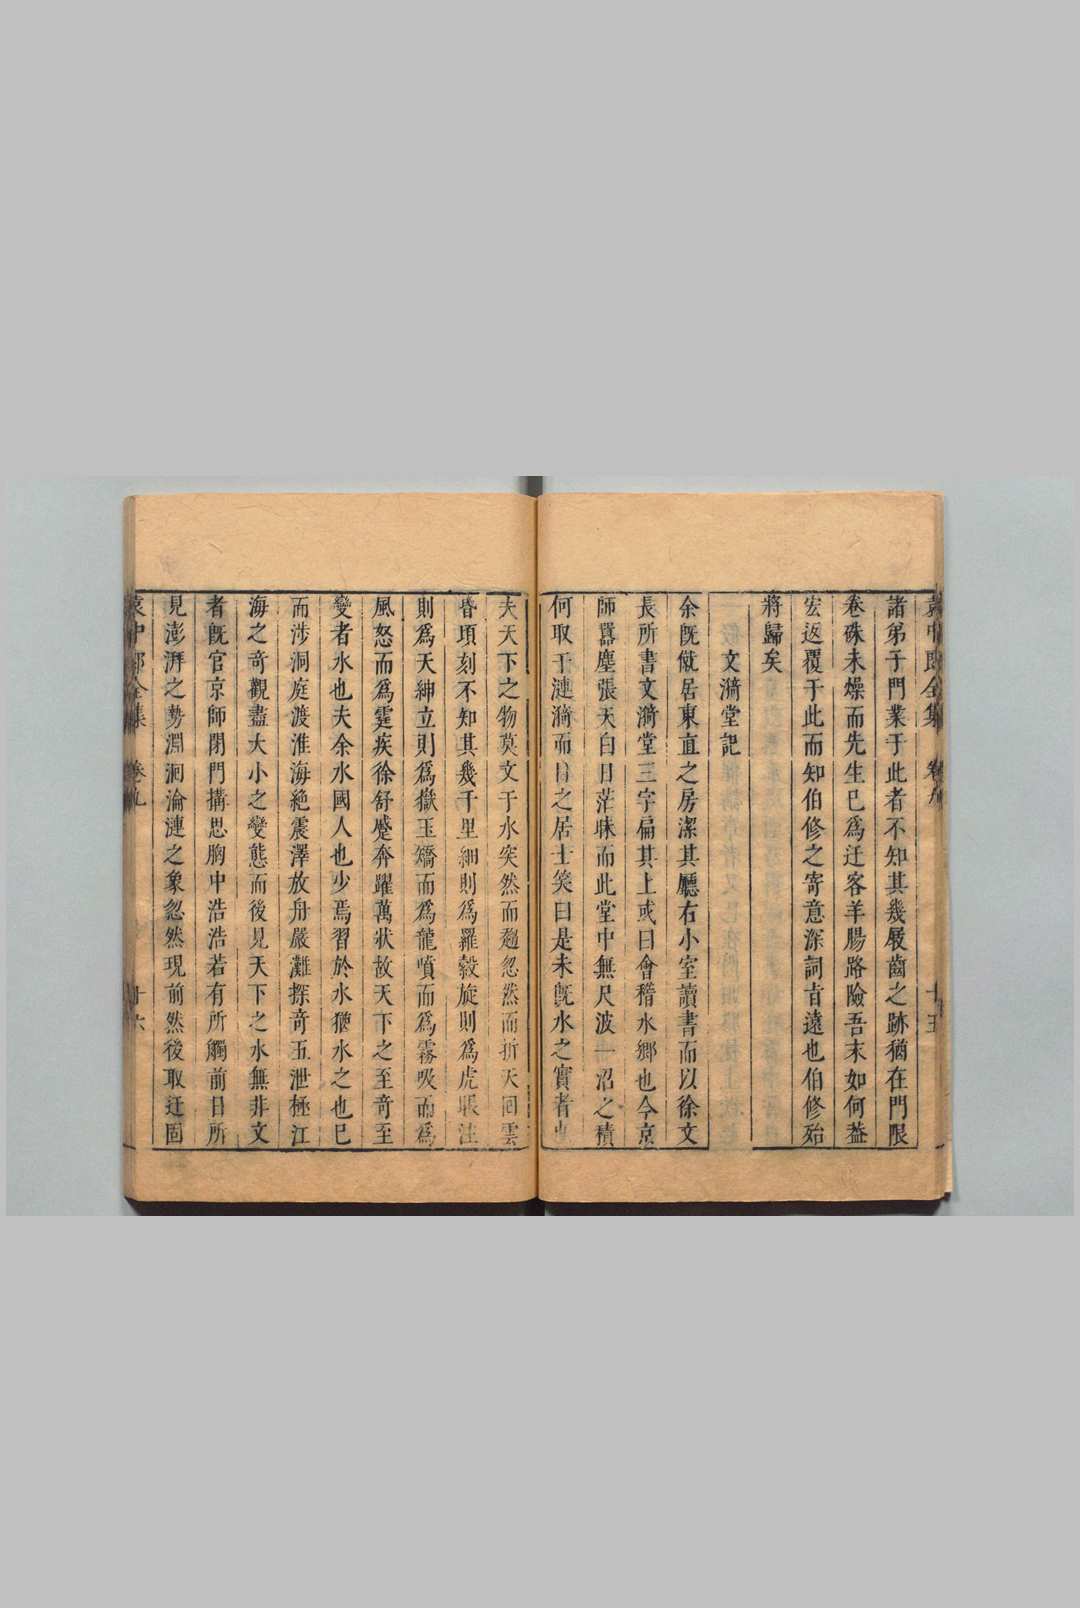 袁中郎全集 卷九 十五
諸弟子門業于此者不知其幾屐齒之跡猶在門限
卷硃未燥而先生已爲迁客羊腸路險吾末如何葢
宏返覆于此而知伯修之寄意深詞旨遠也伯修殆
將歸矣
文漪堂記
余既僦居東直之房潔其廳右小室讀書而以徐文
長所書文漪堂三字扁其上或曰會稽水鄉也今京
師囂塵張天白日茫昧而此堂中無尺波一沼之積
何取于漣漪而目之居士笑曰是未既水之實者也
夫天下之物莫文于水突然而趨忽然而折天囘雲
昏頃刻不知其幾千里細則爲羅縠旋則爲虎眼注
則爲天紳立則爲嶽玉矯而爲龍噴而爲霧吸而爲
風怒而爲霆疾徐舒蹙奔躍萬狀故天下之至奇至
變者水也夫余水國人也少焉習於水猶水之也已
而涉洞庭渡淮海絶震澤放舟嚴灘探奇五泄極江
海之奇觀盡大小之變態而後見天下之水無非文
者既官京師閉門搆思胸中浩浩若有所觸前日所
見澎湃之勢淵洄淪漣之象忽然現前然後取迁固
袁中郎全集 卷九 十六